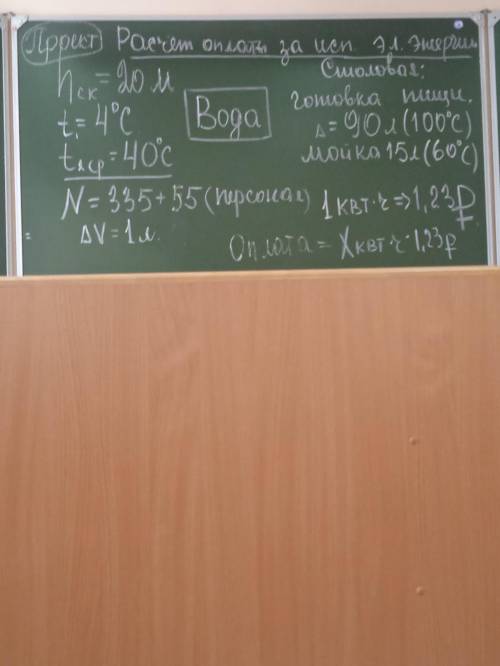 Проект Расчет оплаты за исп. эл. энергии
hск = 20 м
t₁ = 4°C
tx ср = 40°C
N = 335 + 55 (персонал)
ΔV = 1 л.
Вода
Столовая:
готовка пищи.
Δ = 90 л (100°C)
мойка 15 л (60°C)
1 квт·ч => 1,23 ₽
Оплата = X квт·ч · 1,23 ₽